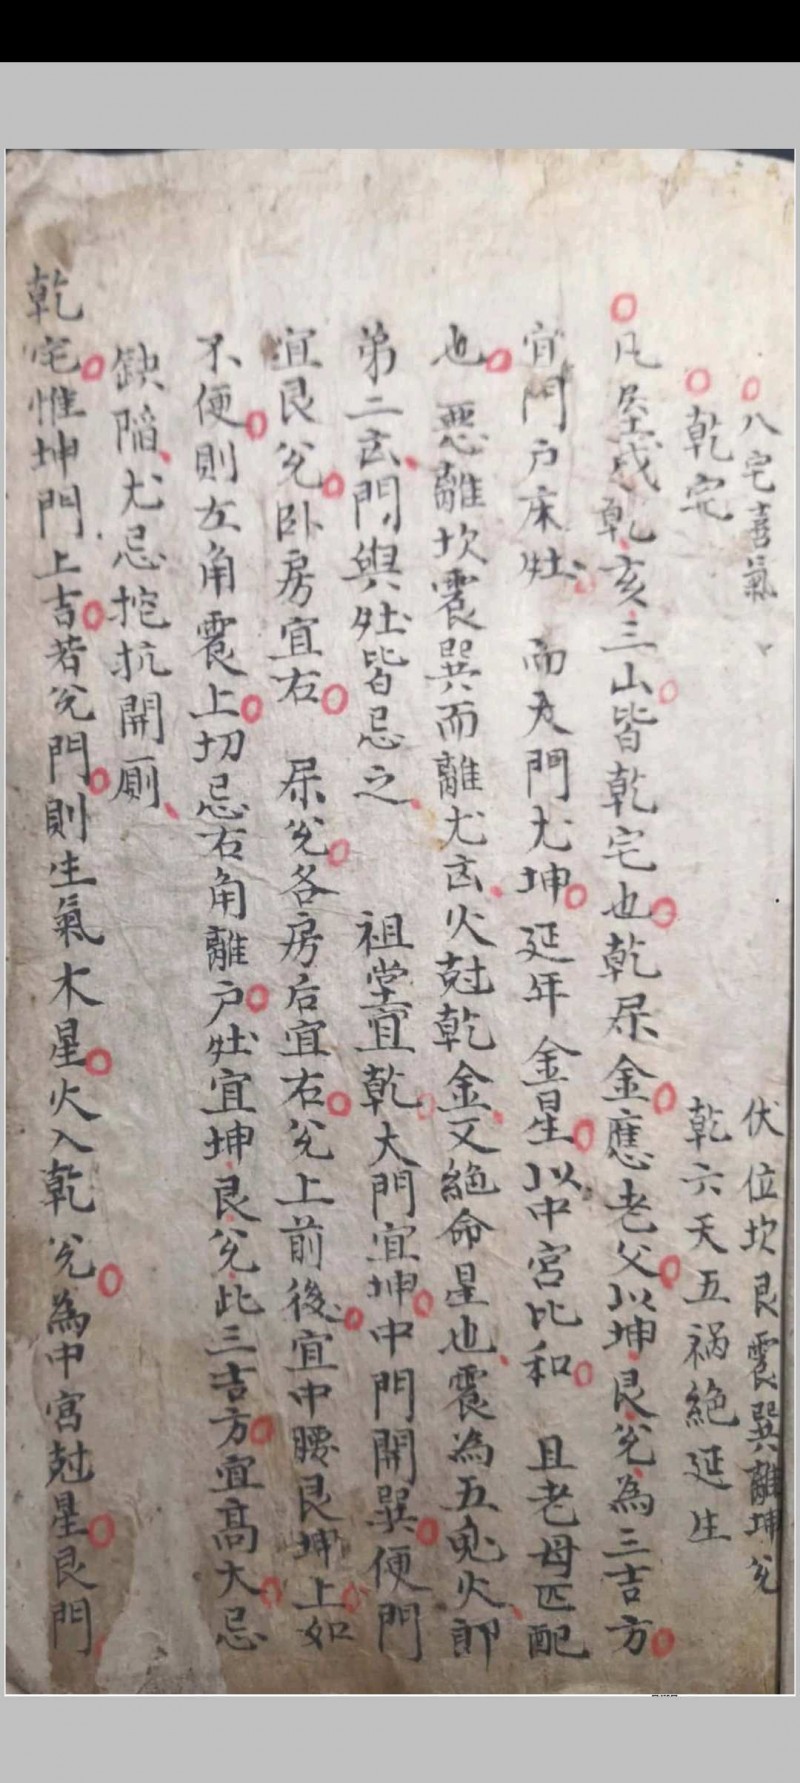 八宅喜氣 伏位坎艮震巽離坤兌
乾宅 乾六天五祸絶延生
凡屋戌乾亥三山皆乾宅也乾屎金應老父以坤艮兌為三吉方
宜門户床灶 而大門尤坤延年 金星以中宮比和 且老母匹配
也 惡離坎震巽而離尤㐫火尅乾金又絶命星也震為五鬼火即
弟二㐫門與灶皆忌之 祖堂宜乾大門宜坤中門開巽便門
宜艮兌卧房宜右 屎兌各房后宜右兌上前後宜中腰艮坤上如
不便則左角震上切忌右角離户灶宜坤艮兌此三吉方宜高大忌
缺陷尤忌挖抗開厠
乾宅惟坤門上吉若兌門則生氣木星火入乾兌為中宮尅星艮門